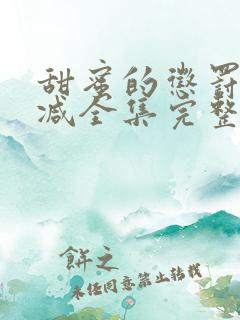 甜蜜的惩罚
减全集完整
饼之
未经同意禁止转载